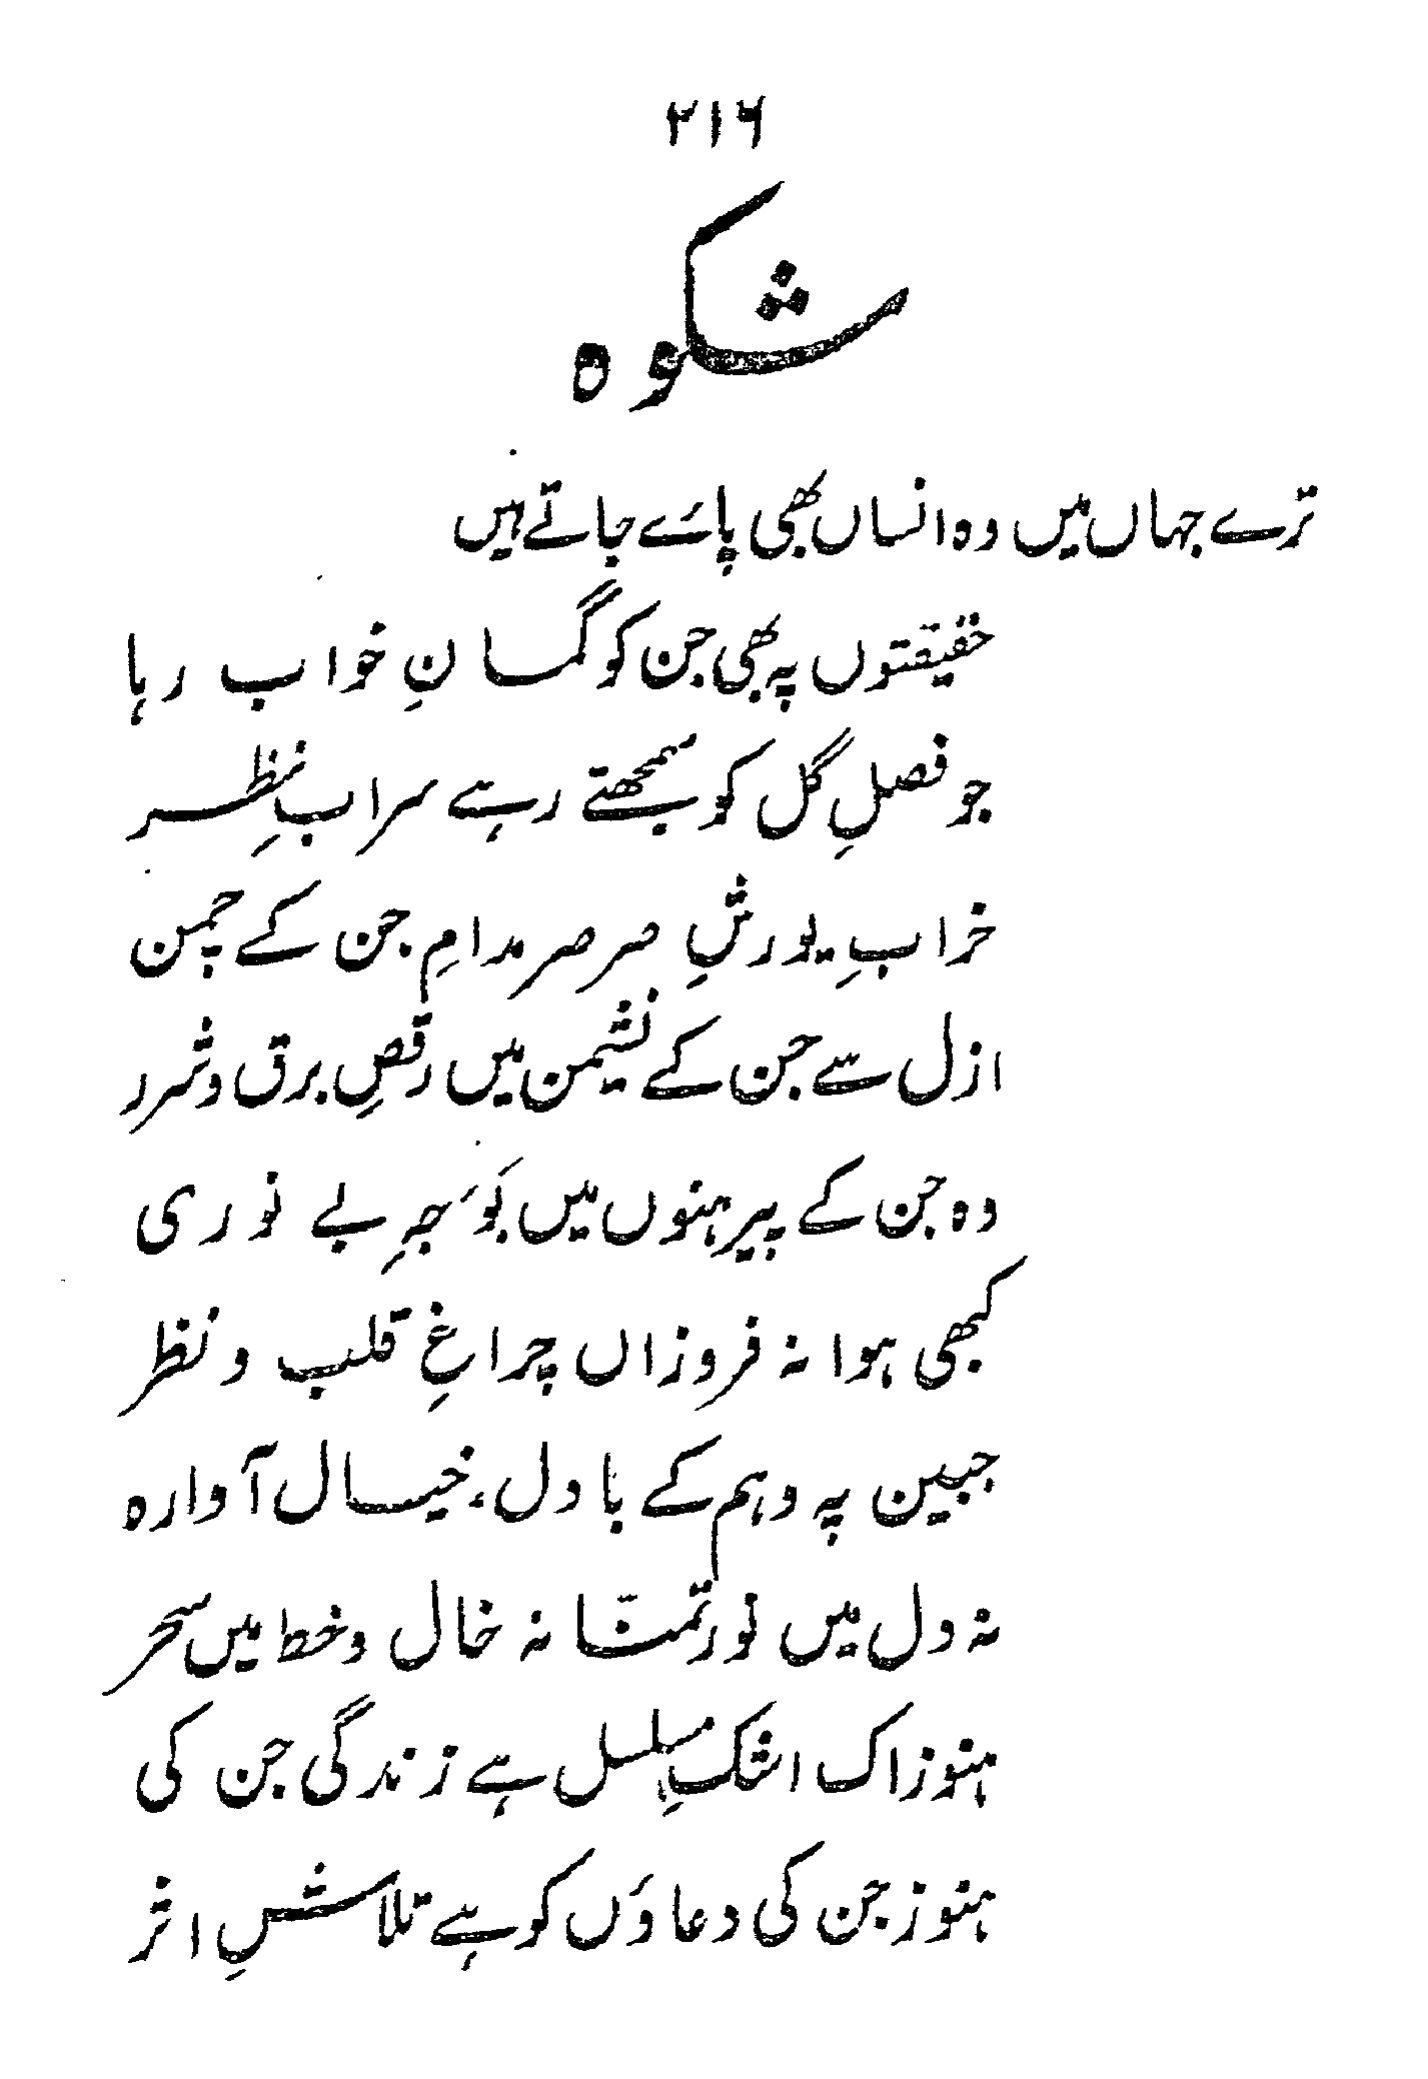 ۲۱۶
شکوہ
ترے جہاں میں وہ انساں بھی پائے جاتے ہیں
حقیقتوں پہ بھی جن کو گمانِ خواب رہا
جو فصلِ گل کو سمجھتے رہے سرابِ نظر
خرابِ یورشِ صرصر مدام جن کے چمن
ازل سے جن کے نشیمن میں رقصِ برق و شرر
وہ جن کے پیرہنوں میں بوئے جہِ بے نوری
کبھی ہوا نہ فروزاں چراغِ قلب و نظر
جبین پہ وہم کے بادل، خیال آوارہ
نہ دل میں نورِ تمنّا نہ خال و خط میں سحر
ہنوز اک اشکِ مسلسل ہے زندگی جن کی
ہنوز جن کی دعاؤں کو ہے تلاشِ اثر